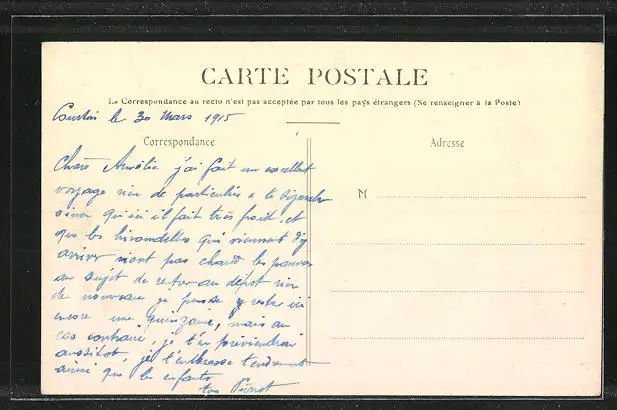 CARTE POSTALE
La Correspondance au recto n'est pas acceptée par tous les pays étrangers (Se renseigner à la Poste)
le 30 Mars 1915
Correspondance
Adresse
M
Chère Amélie j'ai fait un excellent
voyage rien de particulier a te
sinon qu'ici il fait très froid, et
que les hirondelles qui viennent d'y
arriver n'ont pas chaud les pauvres
au sujet de retour au dépôt rien
de nouveau je pense y rester ici
encore une quinzaine, mais au
cas contraire, je t'en préviendrai
aussitôt, je t'embrasse tendrement
ainsi que les enfants
ton